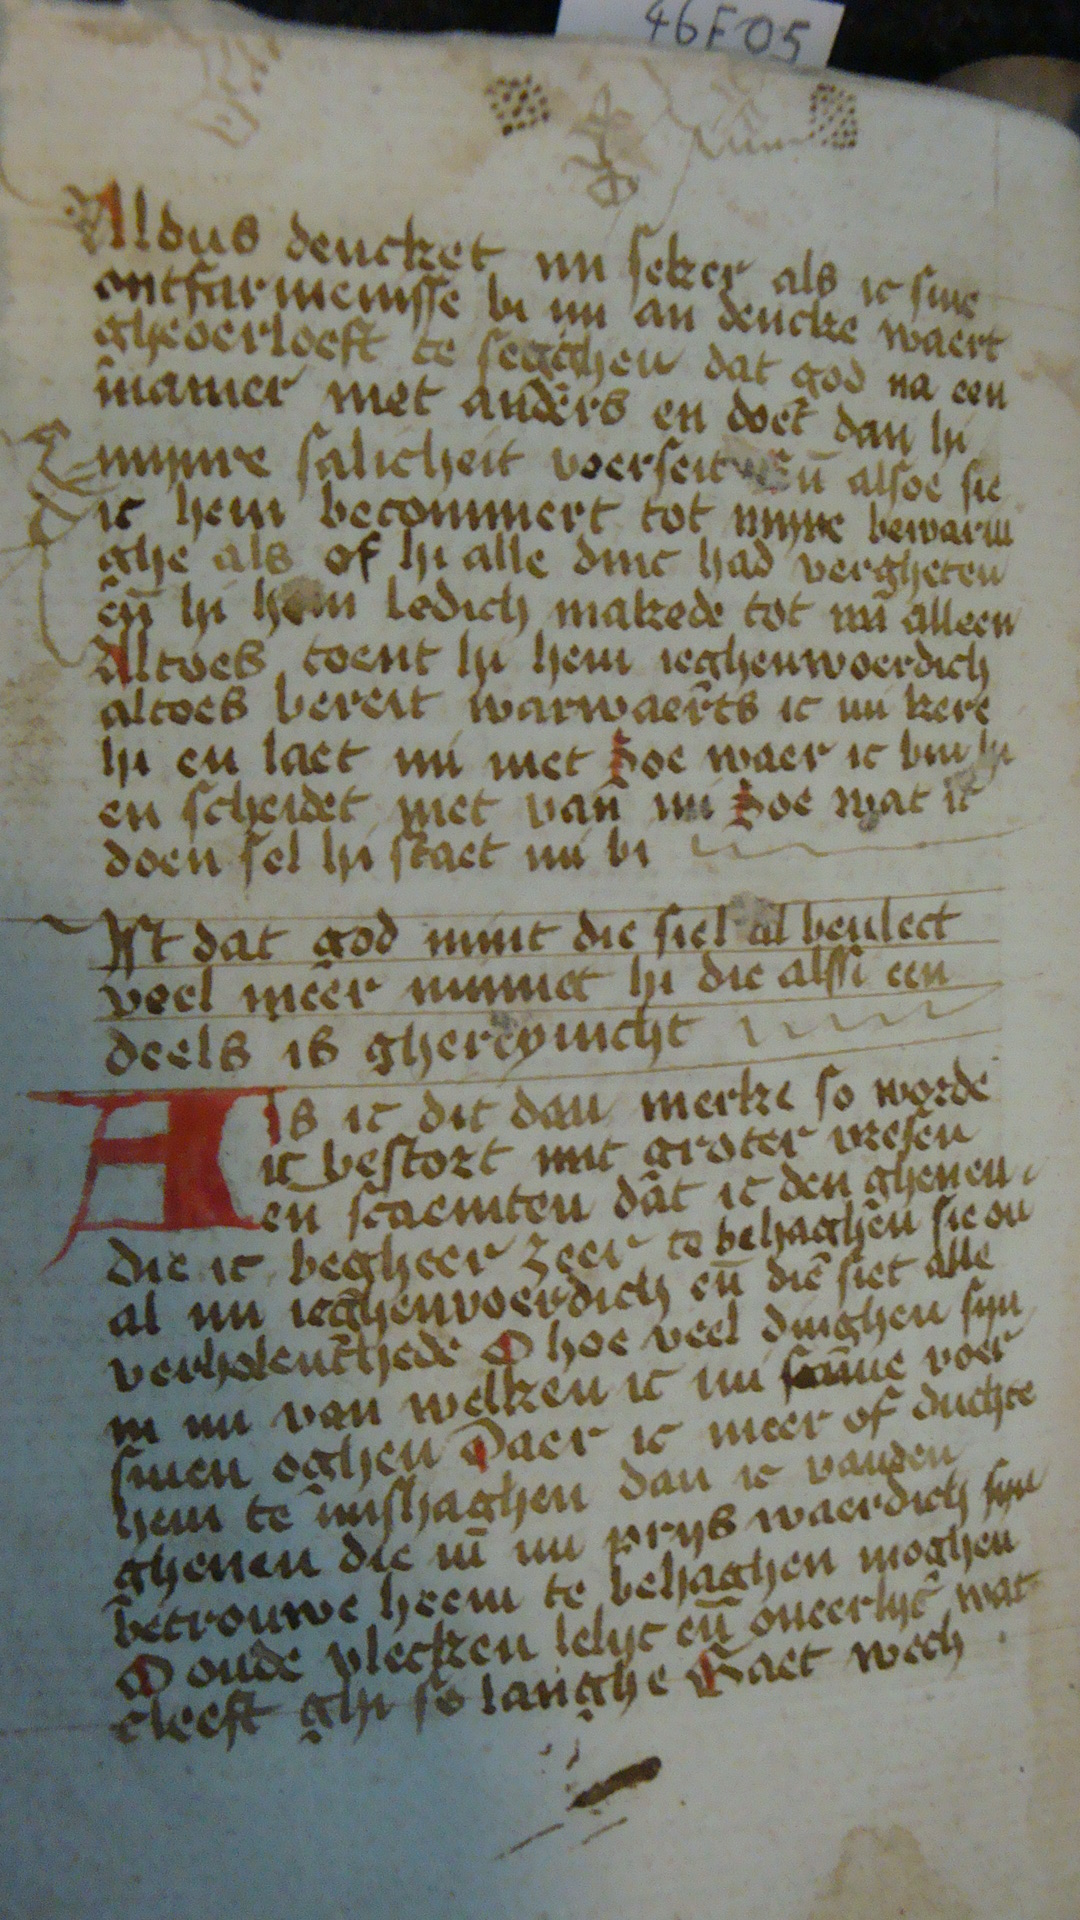 46F05
Aldus dencket mi seker als ic sine
ontfarmenisse bi mi an dencke waert
gheoerloeft te segghen dat god na een
manier niet anders en doet dan hi
mijnre salicheit voerseit Eñ alsoe sie
ic hem becommert tot mijnre bewarin
ghe als of hi alle dinc had vergheten
eñ hi hem ledich makede tot mi alleen
Altoes toent hi hem ieghenwoerdich
altoes bereit warwaerts ic mi kere
hi en laet mi niet Soe waer ic bin hi
en scheidet niet van mi Soe wat ic
doen sel hi staet mi bi
Ist dat god mint die siel al bevlect
veel meer minnet hi die alssi een
deels is ghereynicht
Als ic dit dan merke so worde
ic bestort mit groter vresen
en scaemten dat ic den ghenen
die ic begheer zeer te behaghen sie ou
al mi ieghenwoerdich eñ die siet alle
verholenthede O hoe veel dinghen sijn
in mi van welken ic mi scame voer
sinen oghen Daer ic meer of duchte
hem te mishaghen dan ic vanden
ghenen die in mi prijs waerdich sijn
betrouwe heem te behaghen moghen
O oude vlecken lelijc eñ oneerlijc wat
cleeft ghi so langhe Gaet wech